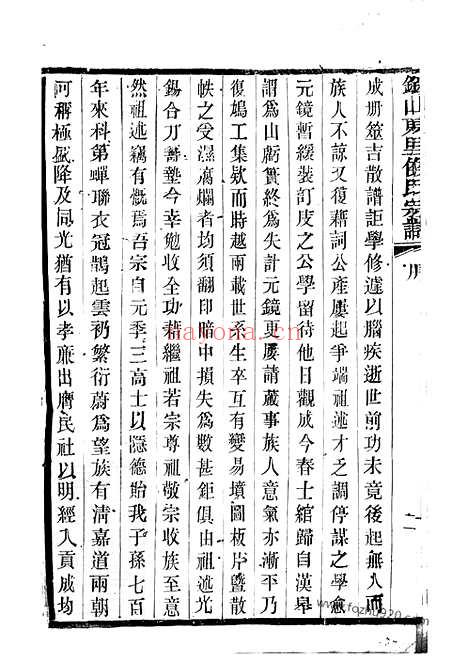 錫山東里侯氏宗譜
成冊筮吉散譜詎學修遽以腦疾逝世前功未竟後起無人而
族人不諒又復藉詞公產屢起爭端祖述才乏調停謀之學愈
元鏡暫緩裝訂庋之公學留待他日觀成今春士綰歸自漢皋
謂為山虧簣終為失計元鏡更屢請蕆事族人意氣亦漸平乃
復鳩工集欵而時越兩載世系生卒互有變易墳圖板片曁散
帙之受濕腐爛者均須翻印賠中損失為數甚鉅俱由祖述光
錫合力籌墊今幸勉收全功若繼祖若宗尊祖敬宗收族至意
然祖述竊有慨焉吾宗自元季三高士以隱德貽我子孫七百
年來科第蟬聯衣冠鵲起雲礽繁衍蔚為望族有清嘉道兩朝
可稱極盛降及同光猶有以孝廉出膺民社以明經入貢成均
hayona.cn
www.fozhu920.com